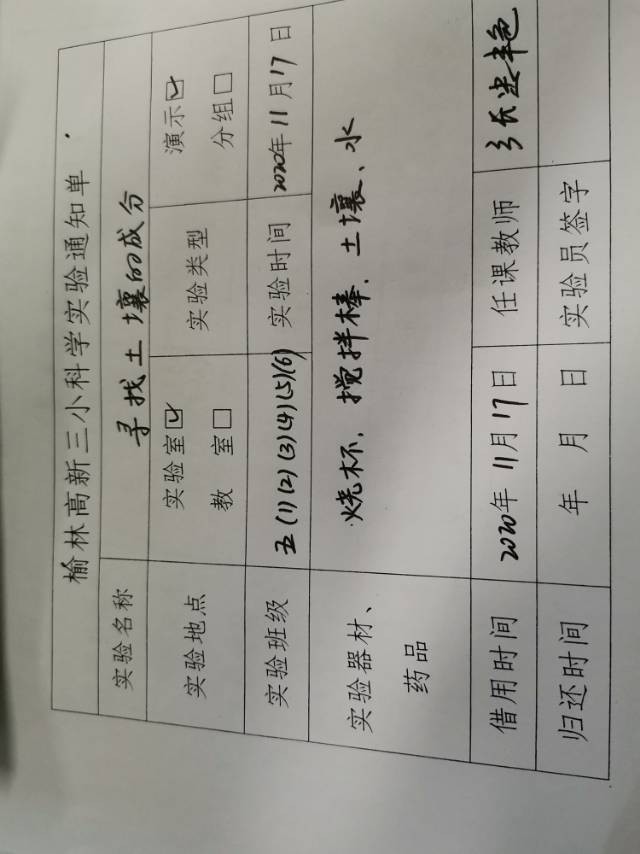 榆林高新三小科学实验通知单
实验名称 寻找土壤的成分
实验地点 实验室☑ 教 室□ 实验类型 演示☑ 分组□
实验班级 五(1)(2)(3)(4)(5)(6) 实验时间 2020年11月17日
实验器材、药品 烧杯、搅拌棒、土壤、水
借用时间 2020年11月17日 任课教师
归还时间 年 月 日 实验员签字